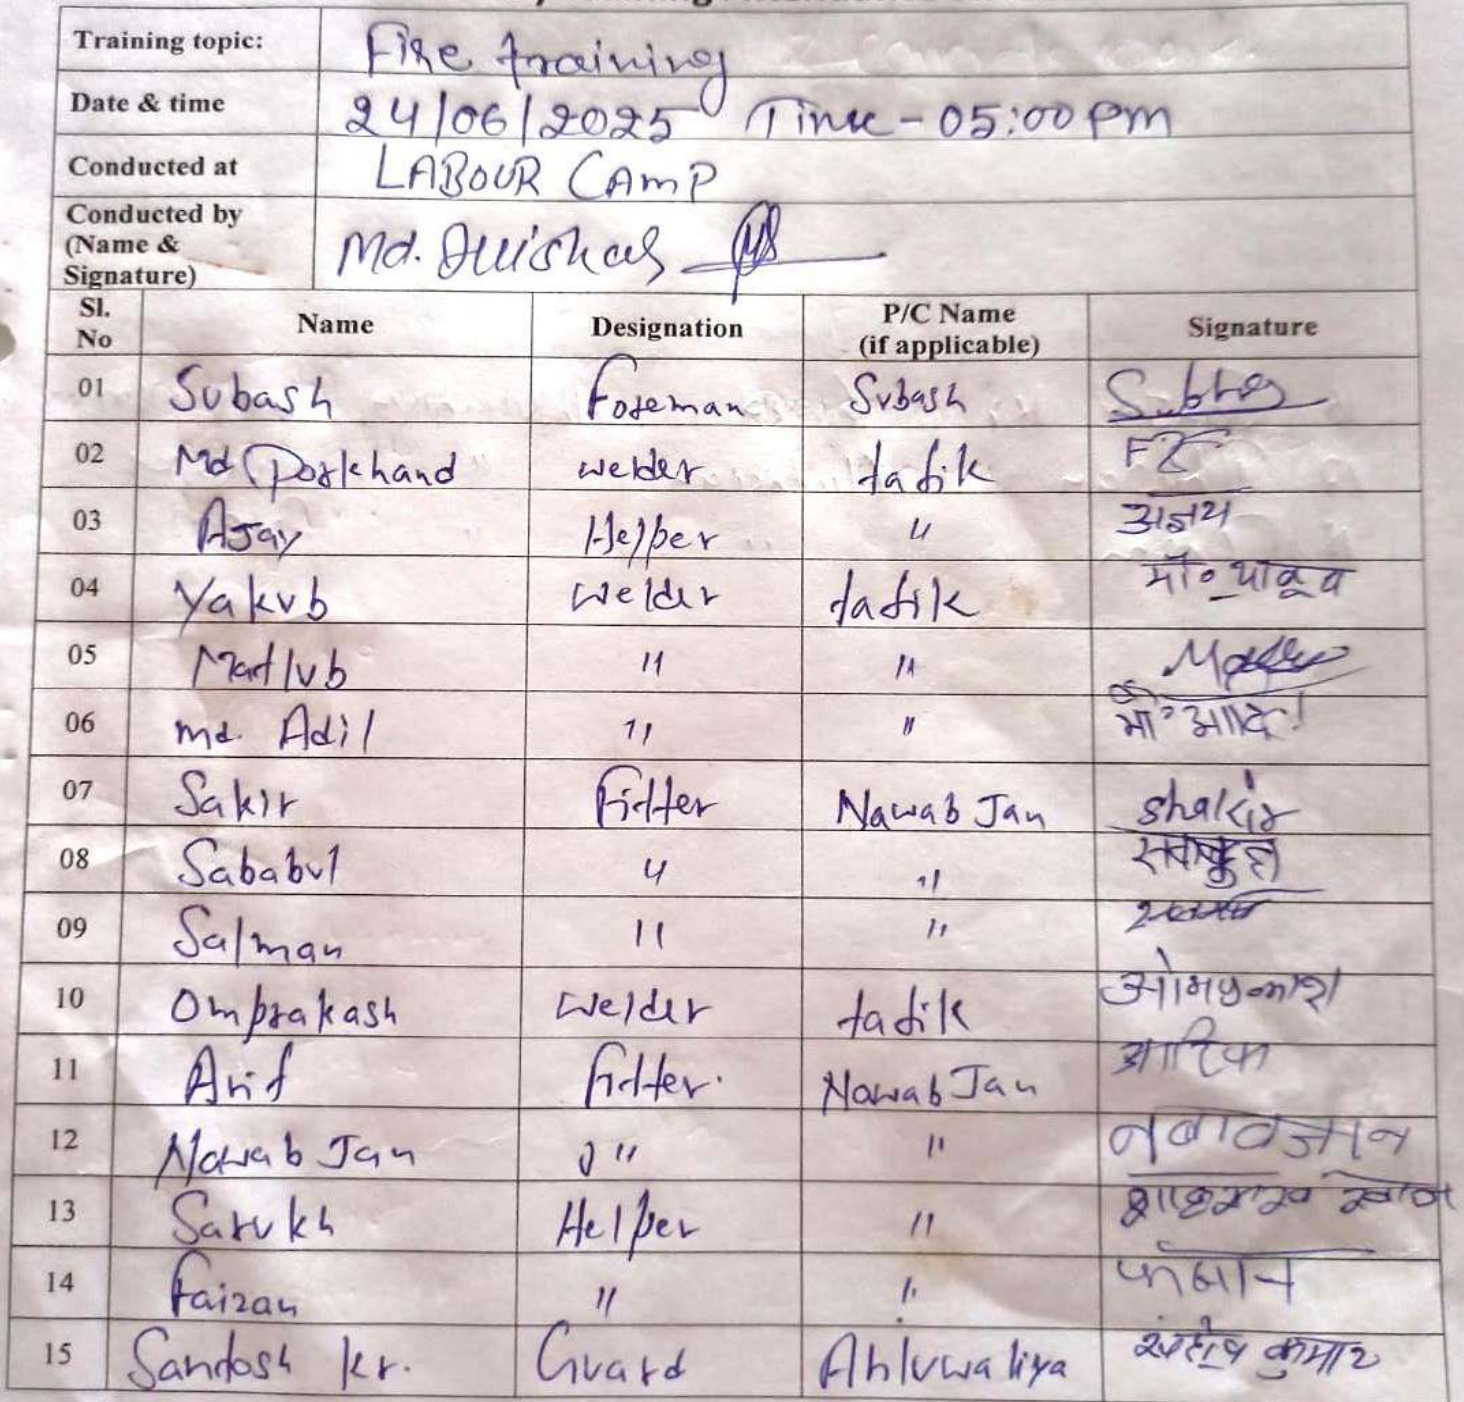 Training topic: Fire training
Date & time 24/06/2025 Time - 05:00 pm
Conducted at LABOUR CAMP
Conducted by
(Name &
Signature) Md.
Sl. No Name Designation P/C Name (if applicable) Signature
01 Subash Foreman Subash
02 Md welder tarik
03 Ajay Helper " अजय
04 Yakub welder tarik मो० याकूब
05 Matlub " "
06 md. Adil " "
07 Sakir Fitter Nawab Jan Shakir
08 Sababul " "
09 Salman " "
10 Omprakash welder tarik ओमप्रकाश
11 Arif Fitter. Nawab Jan
12 Nawab Jan " " नबावजान
13 Sarukh Helper "
14 Faizan " "
15 Santosh kr. Guard Ahluwaliya कुमार